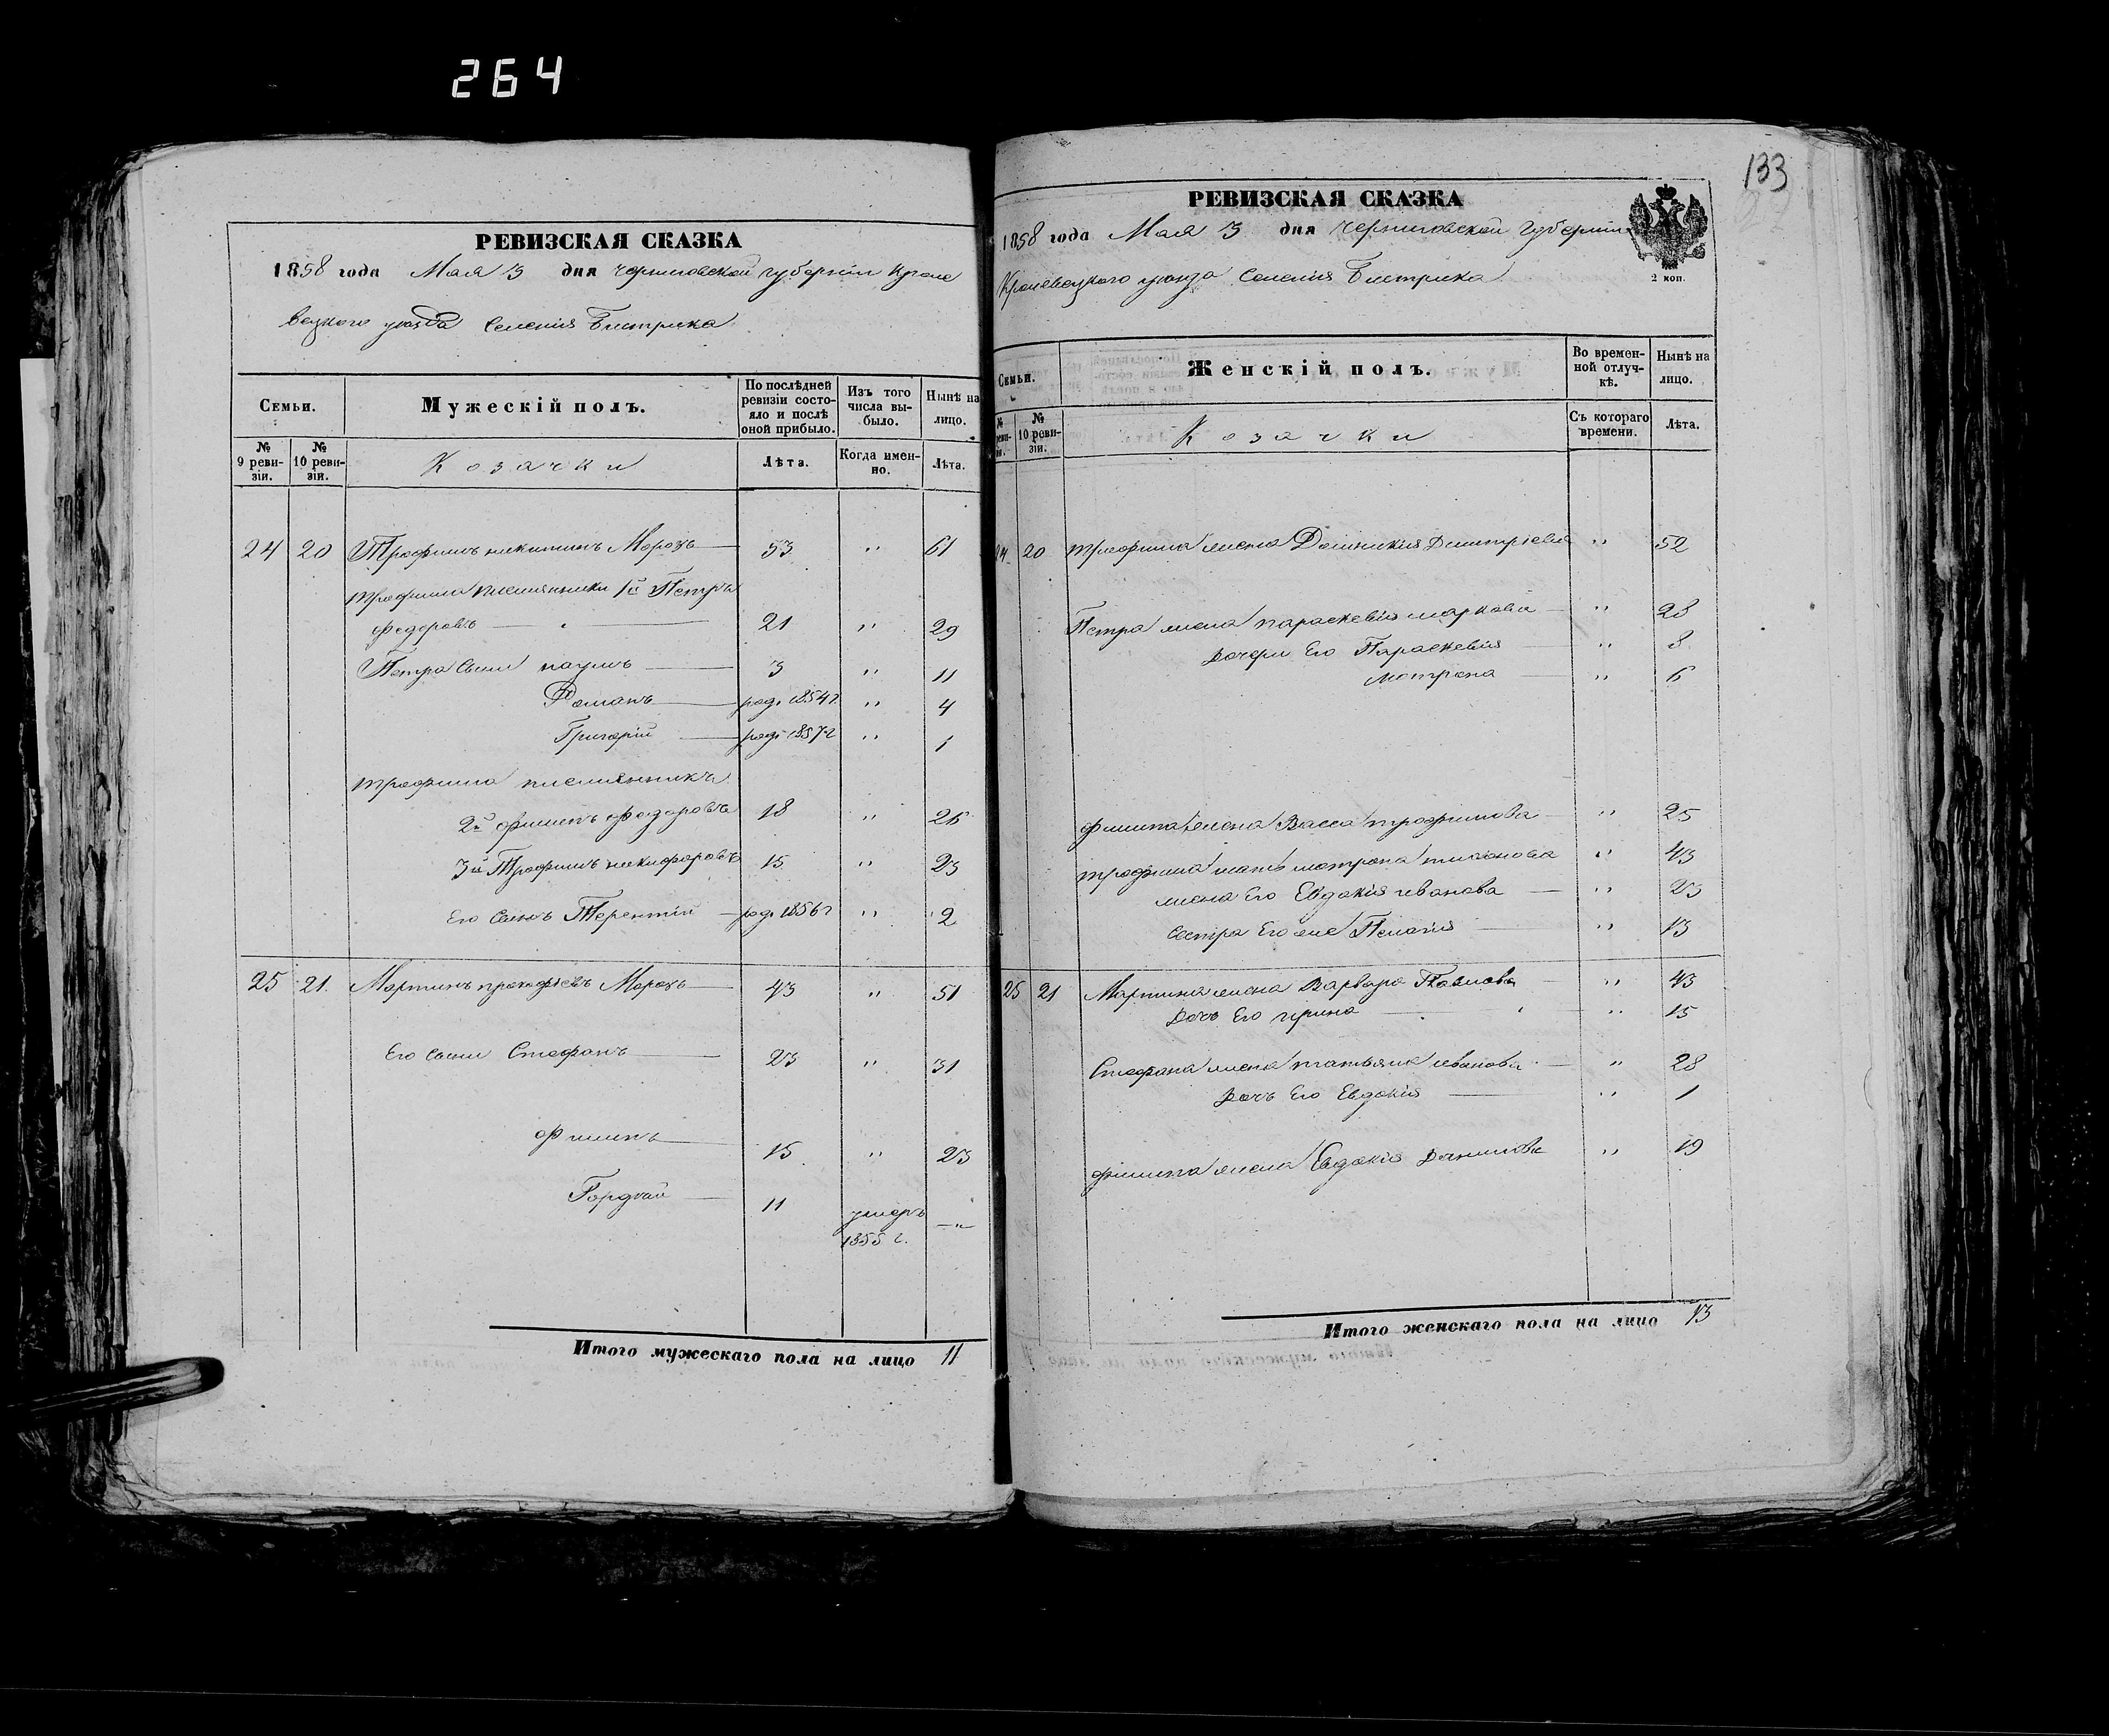 264
РЕВИЗСКАЯ СКАЗКА
1858 года Мая 3 дня Черниговской губерніи Кроле
вецкого уезда Селенія Бистрика
Семьи.
Мужескій полъ.
По послѣдней ревизіи состояло и послѣ оной прибыло.
Изъ того числа выбыло.
Нынѣ на лицо.
№ 9 ревизіи.
№ 10 ревизіи.
Козачки
Лѣта.
Когда именно.
Лѣта.
24 20 Трофимъ никитинъ Морозъ 53 " 61
трофима племянники 1й Петръ
федоровъ 21 " 29
Петра Сыни наумъ 3 " 11
Романъ род. 1854 г " 4
Григорій род. 1857 г " 1
трофима племянникъ
2й филипъ федоровъ 18 " 26
3й Трофимъ никифоровъ 15 " 23
Его Сынъ Терентій род. 1856 г " 2
25 21. Мартинъ прокофіевъ Морозъ 43 " 51
Его Сыни Стефанъ 23 " 31
филипъ 15 " 23
Гордѣй 11 умеръ 1855 г. "
Итого мужескаго пола на лицо 11
133
РЕВИЗСКАЯ СКАЗКА
1858 года Мая 3 дня Черниговской Губерніи
2 коп.
Кролевецкого уезда Селенія Бистрика
Семьи.
Женскій полъ.
Во временной отлучкѣ.
Нынѣ на лицо.
№ 10 ревизіи.
Козачки
Съ котораго времени.
Лѣта.
24 20 трофима жена Домникія Дмитріева " 52
Петра жена параскевія маркова " 28
Дочери Его Параскевія " 8
мотрона " 6
филипа жена Васса трофимова " 25
трофима мать мотрона тиханова " 43
жена Его Евдокія иванова " 23
сестра Его же Пелагія " 13
25 21 Мартина жена Варвара Павлова " 43
Дочь Его ирина " 15
Стефана жена татьяна иванова " 28
Дочь Его Евдокія " 1
филипа жена Евдокія Данилова " 19
Итого женскаго пола на лицо 13